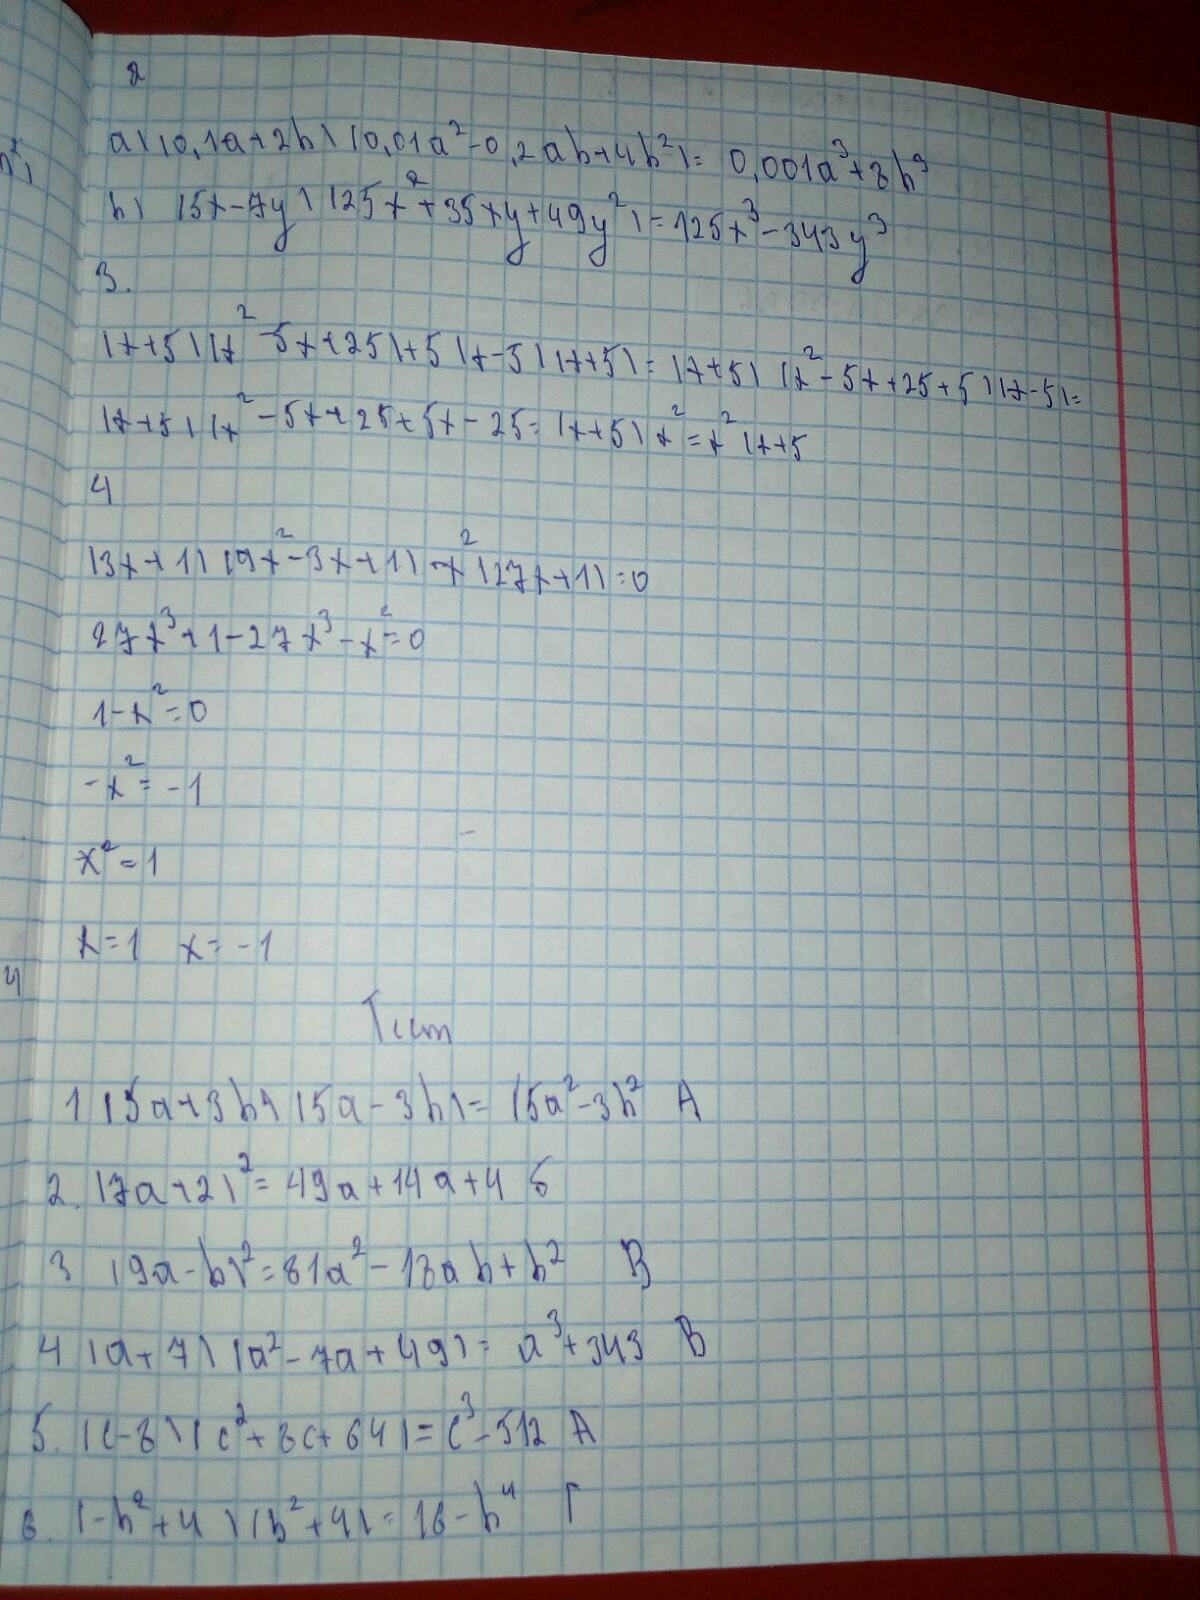 2
a) (0,1a+2b)(0,01a²-0,2ab+4b²)= 0,001a³+8b³
b) (5x-7y)(25x²+35xy+49y²)=125x³-343y³
3.
(x+5)(x²-5x+25)+5(x-5)(x+5)=(x+5)(x²-5x+25+5)(x-5)=
(x+5)(x²-5x+25+5x-25=(x+5)x²=x²(x+5
4
(3x+1)(9x²-3x+1)-x²(27x+1)=0
27x³+1-27x³-x²=0
1-x²=0
-x²=-1
x²=1
x=1 x=-1
Тест
1 (5a+3b)(5a-3b)=(5a²-3b² А
2. (7a+2)²=49a+14a+4 б
3 (9a-b)²=81a²-18ab+b² В
4 (a+7)(a²-7a+49)= a³+343 В
5. (c-8)(c²+8c+64)=c³-512 А
6. (-b²+4)(b²+4)=16-b⁴ Г